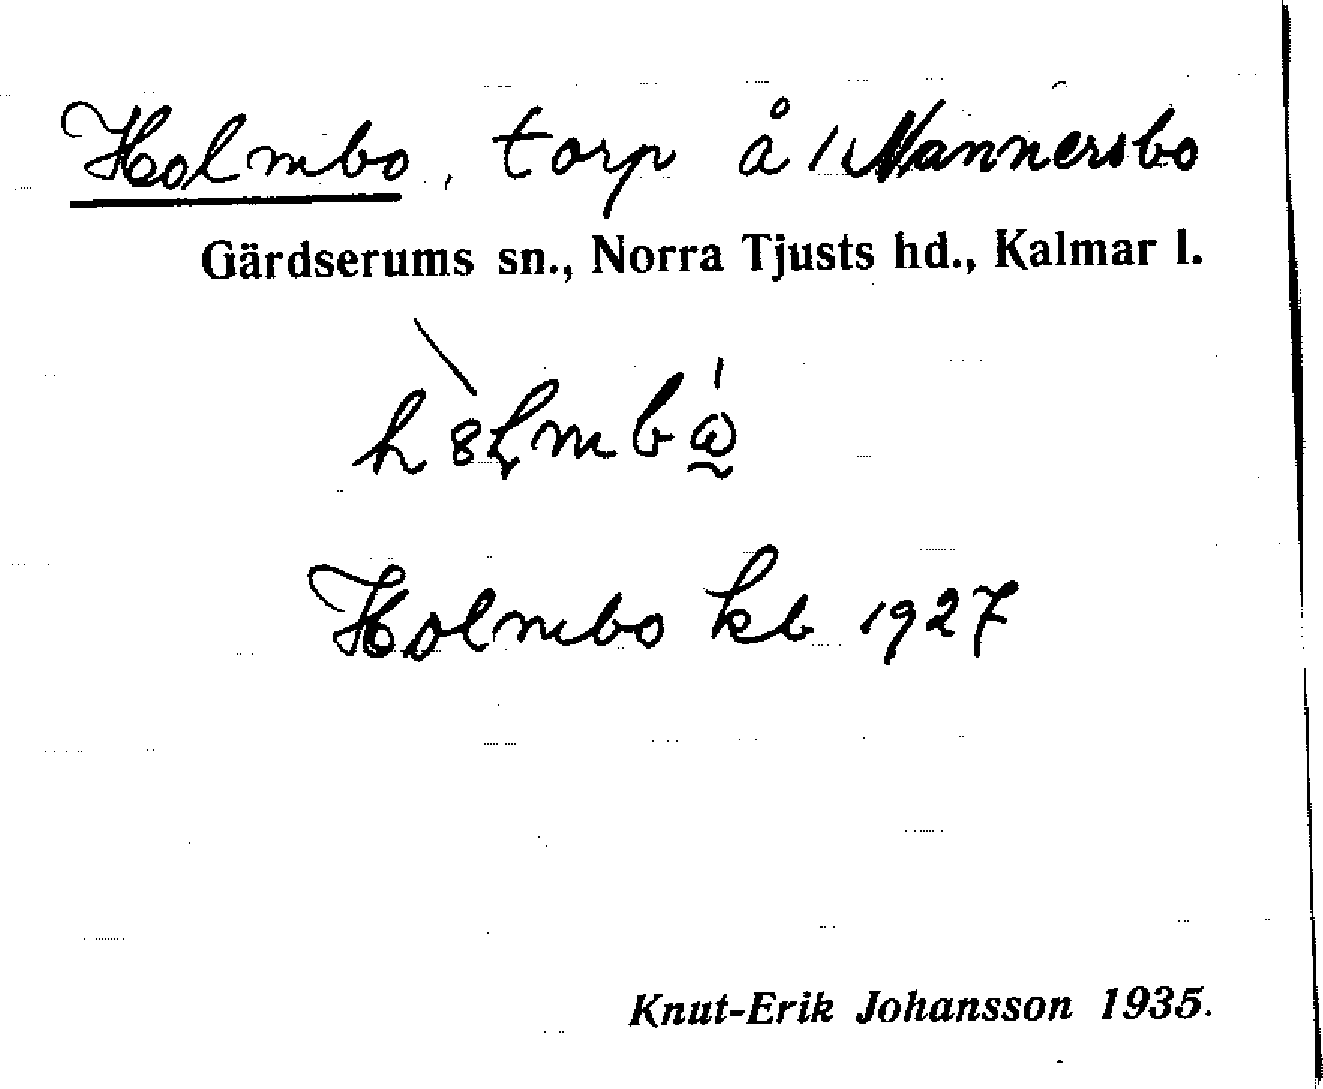 Holmbo, torp å Mannersbo
Gärdserums sn., Norra Tjusts hd., Kalmar l.
Holmbo kb 1927
Knut-Erik Johansson 1935.